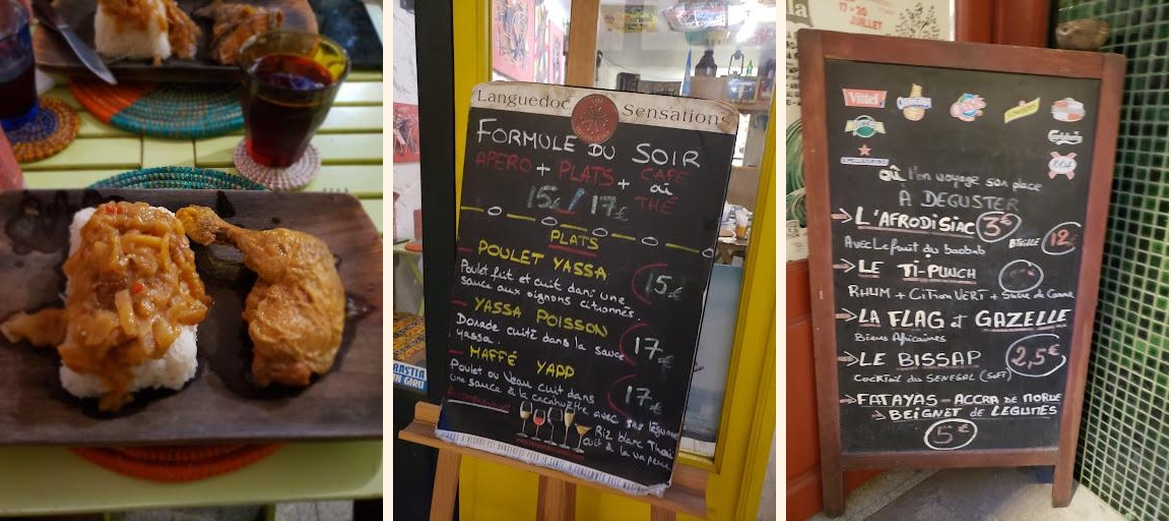 Languedoc Sensations
FORMULE DU SOIR
APERO + PLATS + CAFÉ
où
THÉ
15€/17€
PLATS
POULET YASSA
15€
Poulet frit et cuit dans une
sauce aux oignons citronnés.
YASSA POISSON
17€
Dorade cuite dans la sauce
yassa.
MAFFÉ YAPP
17€
Poulet ou Veau cuit dans
une sauce à la cacahuète avec ses légumes
Riz blanc Thai
cuit à la vapeur
17>20
JUILLET
Vittel
S.PELLEGRINO
où l'on voyage sur place
À DEGUSTER
L'AFRODISIAC 3€
Avec Le fruit du baobab
BTEILLE 12€
LE TI-PUNCH
RHUM + CITRON VERT + Sucre de Canne
LA FLAG et GAZELLE
Bières Africaines
LE BISSAP 2,5€
COCKTAIL du SENEGAL (SOFT)
FATAYAS - ACCRA DE MORUE
BEIGNET de LEGUMES
5€